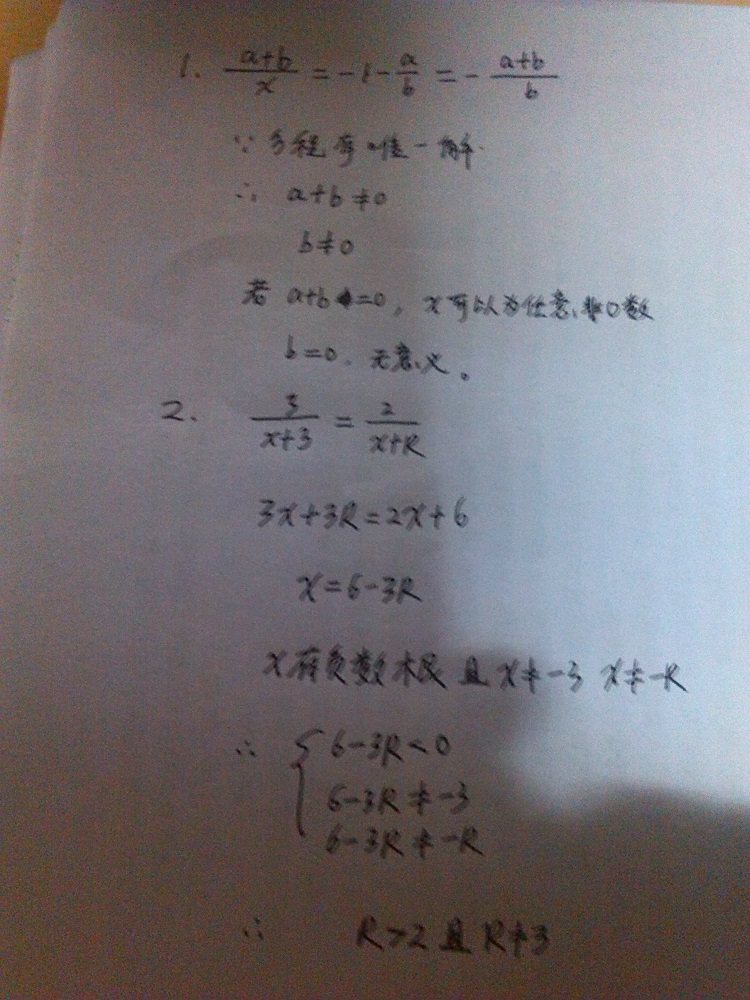 1. (a+b)/x = -1 - a/b = - (a+b)/b
∵ 方程有唯一解.
∴ a+b≠0
b≠0
若 a+b=0, x可以为任意非0数
b=0. 无意义。
2. 3/(x+3) = 2/(x+R)
3x+3R=2x+6
x=6-3R
x有负数根且x≠-3 x≠-R
∴ { 6-3R<0
6-3R≠-3
6-3R≠-R
∴ R>2且R≠3